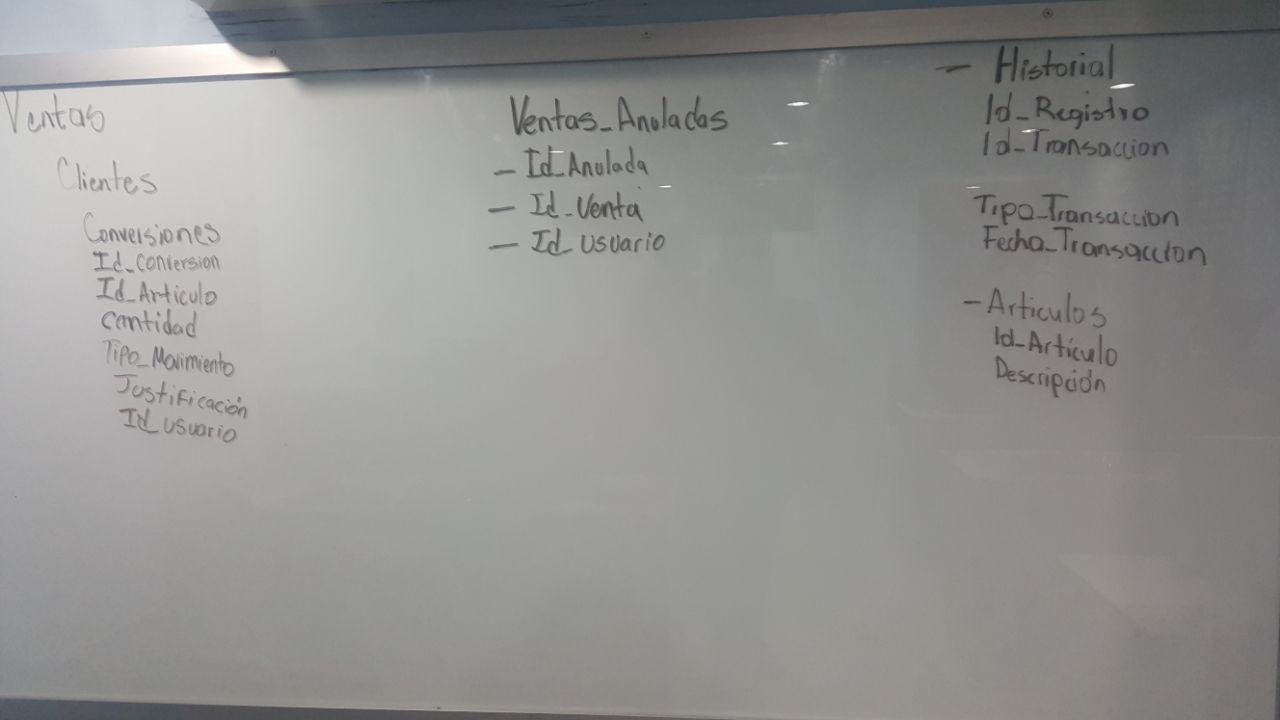 Ventas
Clientes
Conversiones
Id_Conversion
Id_Articulo
Cantidad
Tipo_Movimiento
Justificación
Id_usuario
Ventas_Anuladas
- Id_Anulada
- Id_Venta
- Id_usuario
- Historial
Id_Registro
Id_Transaccion
Tipo_Transaccion
Fecha_Transaccion
- Articulos
Id_Artículo
Descripción